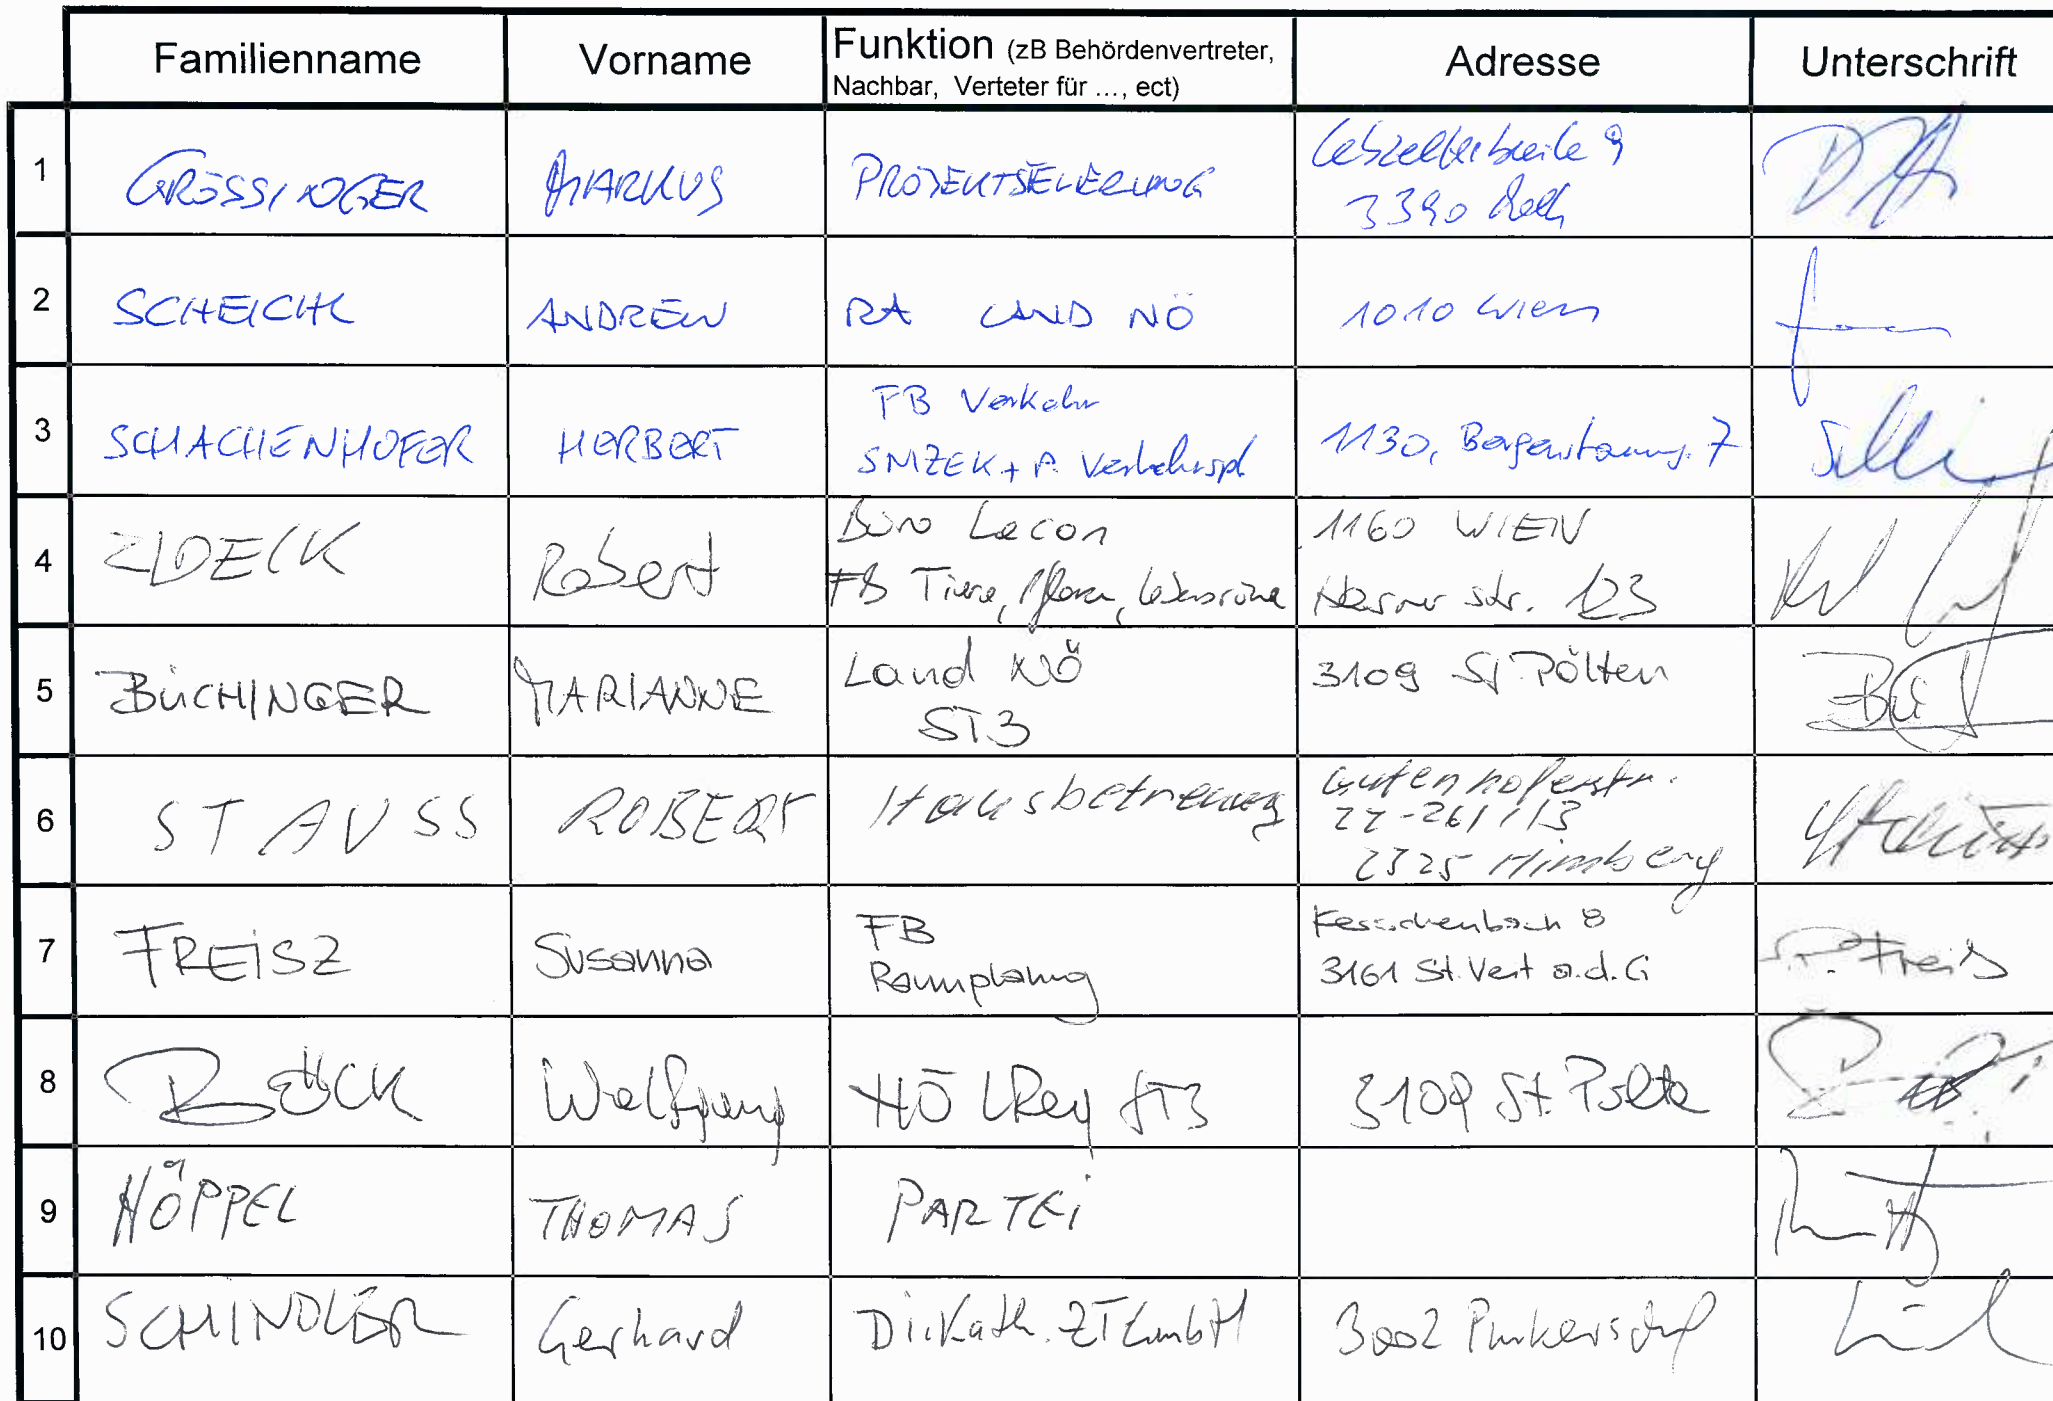 Familienname Vorname Funktion (zB Behördenvertreter, Adresse Unterschrift
Nachbar, Verteter für ..., ect)
1 GRÖSSINGER MARKUS PROJEKTSTEUERUNG 9
3390 Melk
2 SCHEICHL ANDREW RA LAND NÖ 1010 Wien
3 SCHACHENHOFER HERBERT FB Verkehr
SNIZEK + P. Verkehrspl 1130, 7
4 ZIDECK Robert Büro Lacon 1160 WIEN
FB Tiere, Pflanzen, Lebensräume Hasner str. 123
5 BÜCHINGER MARIANNE Land NÖ 3109 St. Pölten
ST3
6 STAUSS ROBERT Hausbetreuung Gutenhoferstr.
22-26/1/3
2325 Himberg
7 FREISZ Susanna FB 8
Raumplanung 3161 St. Veit a.d. G
8 BÖCK Wolfgang NÖ LReg ST3 3109 St. Pölten
9 HÖPPEL THOMAS PARTEI
10 SCHINDLER Gerhard 3002 Purkersdorf